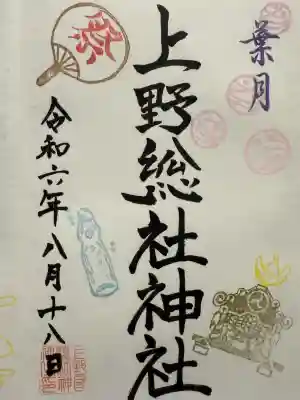 葉月
上野総社神社
祭
令和六年八月十八日